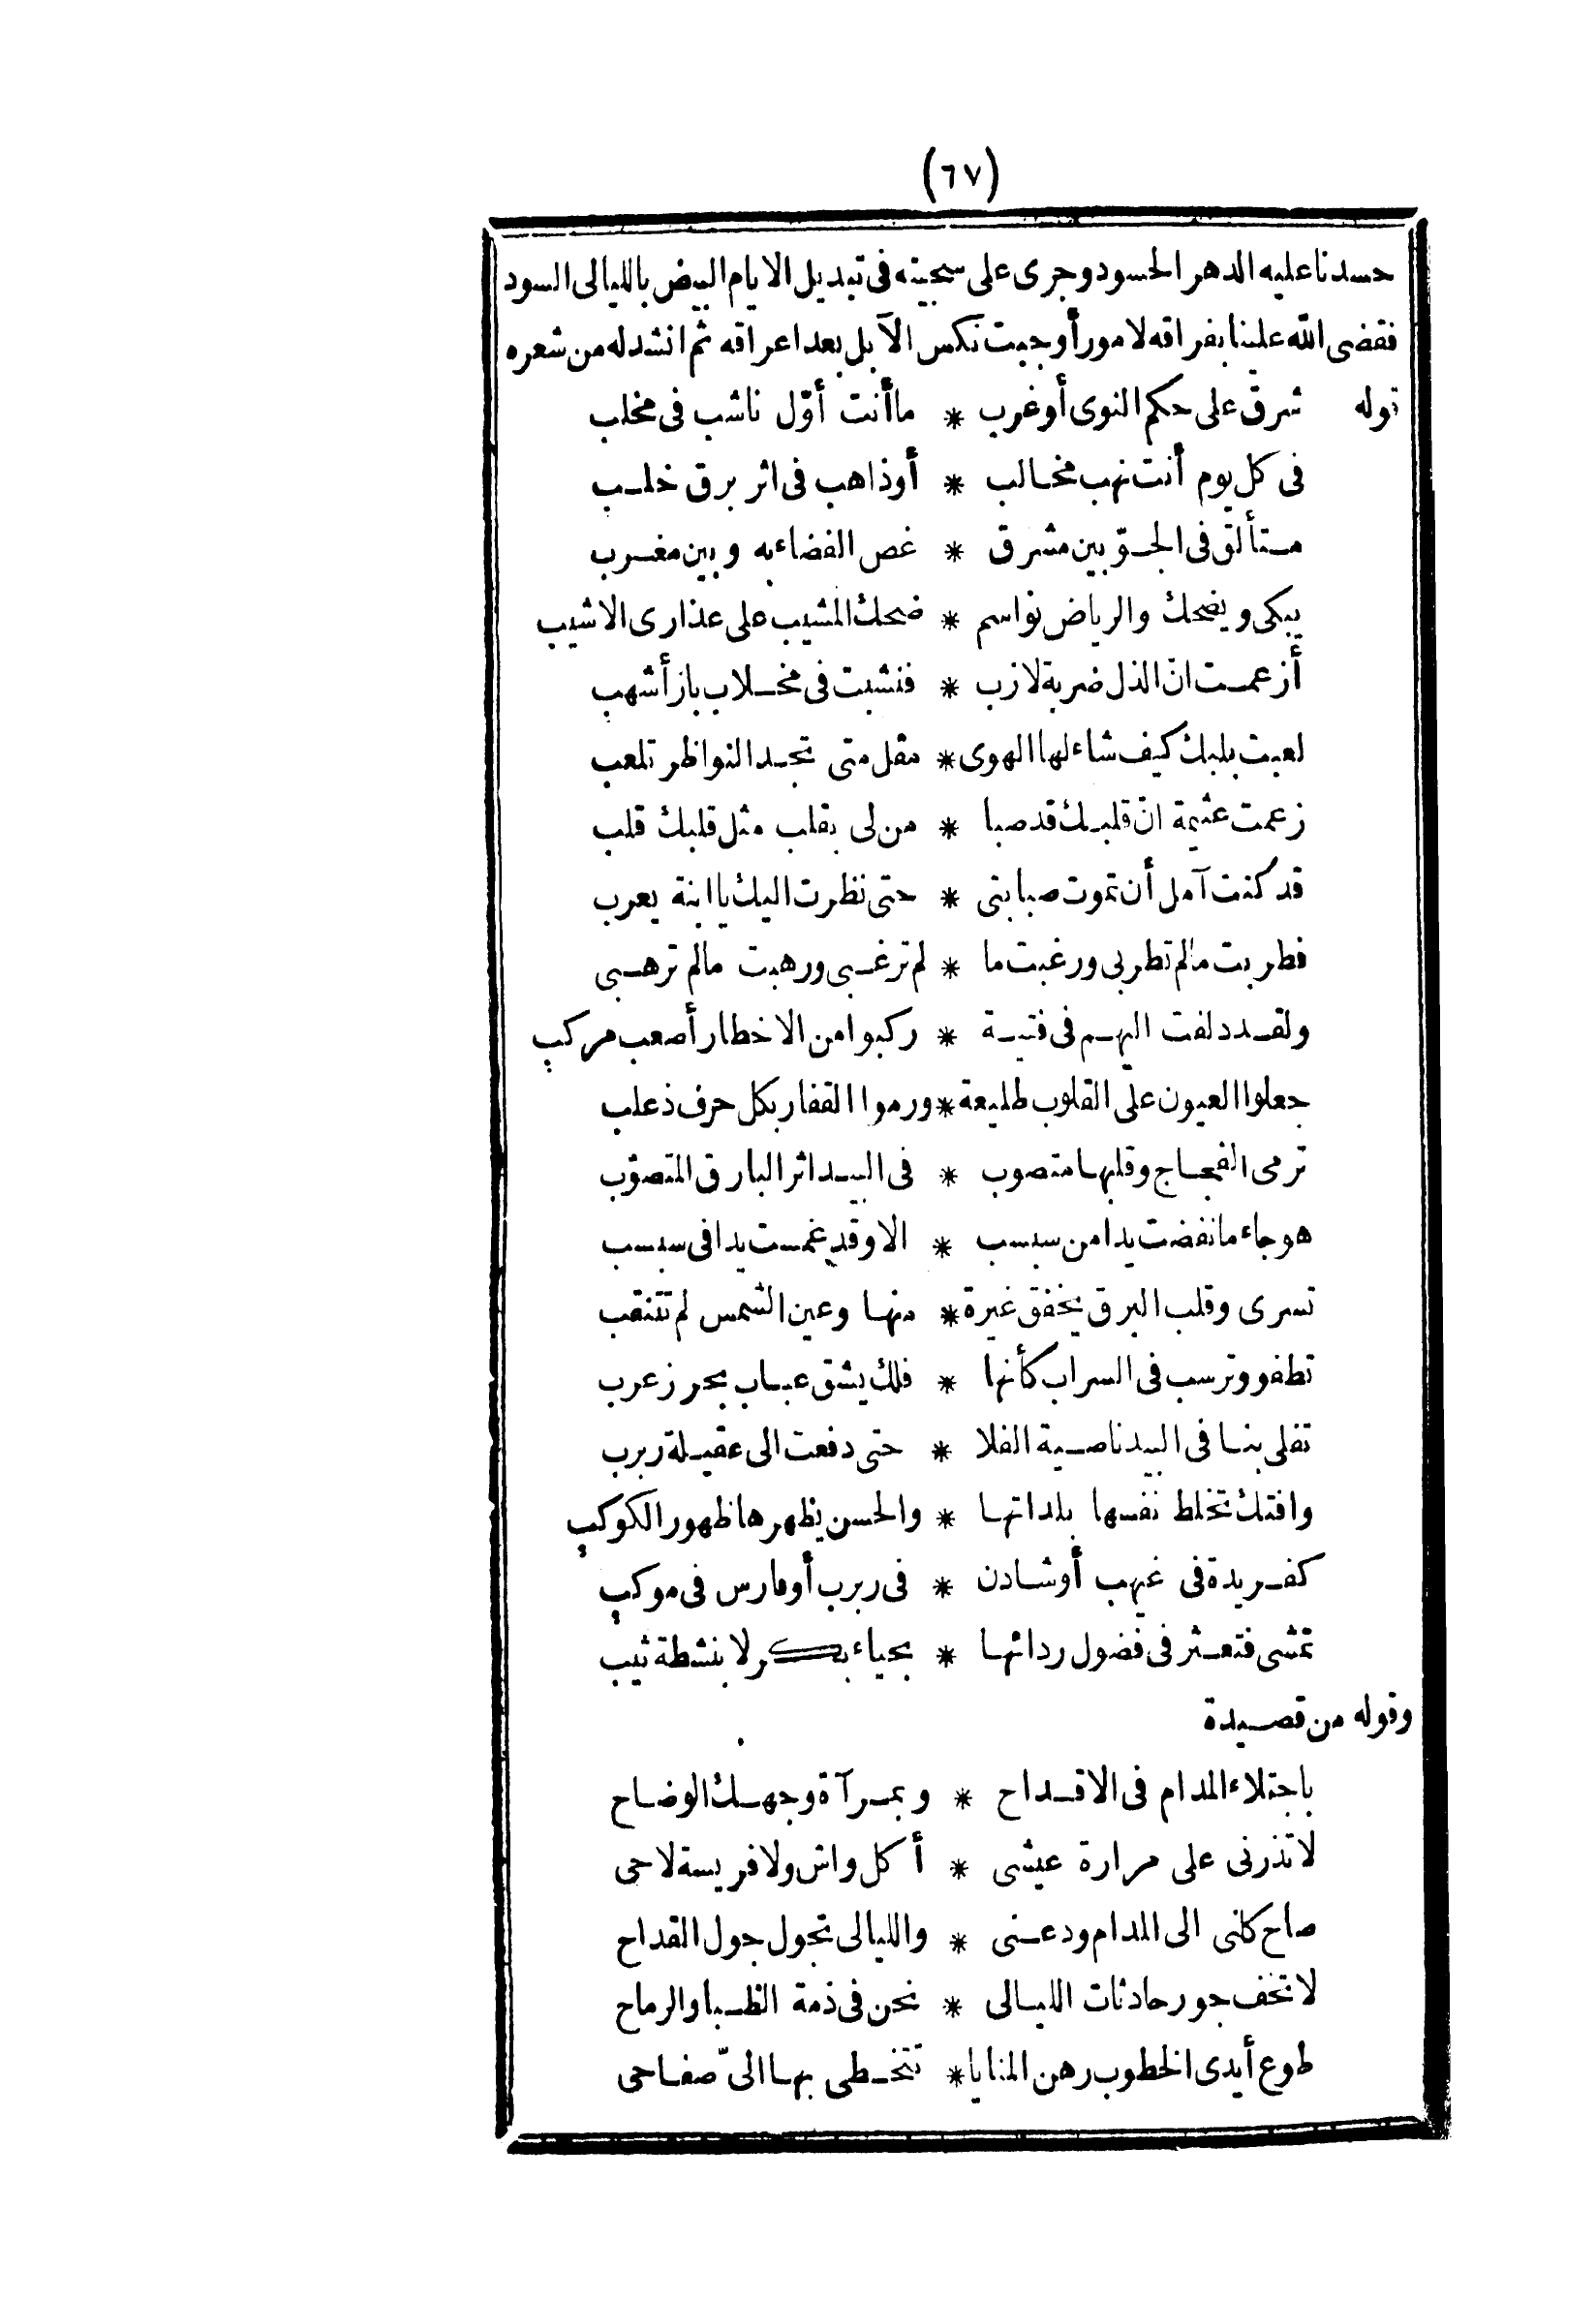 (٦٧)
حسدنا عليه الدهر الحسود وجرى على سجيته فى تبديل الايام البيض بالليالى السود
فقضى الله علينا بفراقه لامور أوجبت نكس الآبل بعد اعراقه ثم انشد له من شعره
قوله شرق على حكم النوى أو غرب * ما أنت أوّل ناشب فى مخلب
فى كل يوم أنت نهب مخالب * أو ذاهب فى اثر برق خلب
متألق فى الجوّ بين مشرق * غص الفضاء به وبين مغرب
يبكى ويضحك والرياض نواسم * ضحك المشيب على عذارى الاشيب
أزعمت انّ الذل ضربة لازب * فنشبت فى مخلاب باز أشهب
لعبت بلبك كيف شاء لها الهوى * مقل متى تجد النواظر تلعب
زعمت عثيمة انّ قلبك قد صبا * من لى بقلب مثل قلبك قلب
قد كنت آمل أن تموت صبابتى * حتى نظرت اليك يا ابنة يعرب
فطربت ما لم تطربى ورغبت ما * لم ترغبى ورهبت ما لم ترهبى
ولقد دلفت اليهم فى فتية * ركبوا من الاخطار أصعب مركب
جعلوا العيون على القلوب طليعة * ورموا القفار بكل حرف ذعلب
ترمى الفجاج وقلبها متصوب * فى البيد اثر البارق المتصوّب
هوجاء ما نفضت يدا من سبسب * الا وقد غمست يدا فى سبسب
تسرى وقلب البرق يخفق غيرة * منها وعين الشمس لم تتنقب
تطفو وترسب فى السراب كأنها * فلك يشق عباب بحر زعرب
تفلى بنا فى البيد ناصية الفلا * حتى دفعت الى عقيلة ربرب
وافتك تخلط نفسها بلداتها * والحسن يظهرها ظهور الكوكب
كفريدة فى غيهب أو شادن * فى ربرب أو فارس فى موكب
تمشى فتعثر فى فضول ردائها * بحياء بكر لا بنشطة ثيب
وقوله من قصيدة
باجتلاء المدام فى الاقداح * وبمرآة وجهك الوضاح
لا تذرنى على مرارة عيشى * أكل واش ولا فريسة لاحى
صاح كلنى الى المدام ودعنى * والليالى تجول جول القداح
لا تخف جور حادثات الليالى * نحن فى ذمة الظبا والرماح
طوع أيدى الخطوب رهن المنايا * تتخطى بها الىّ صفاحى